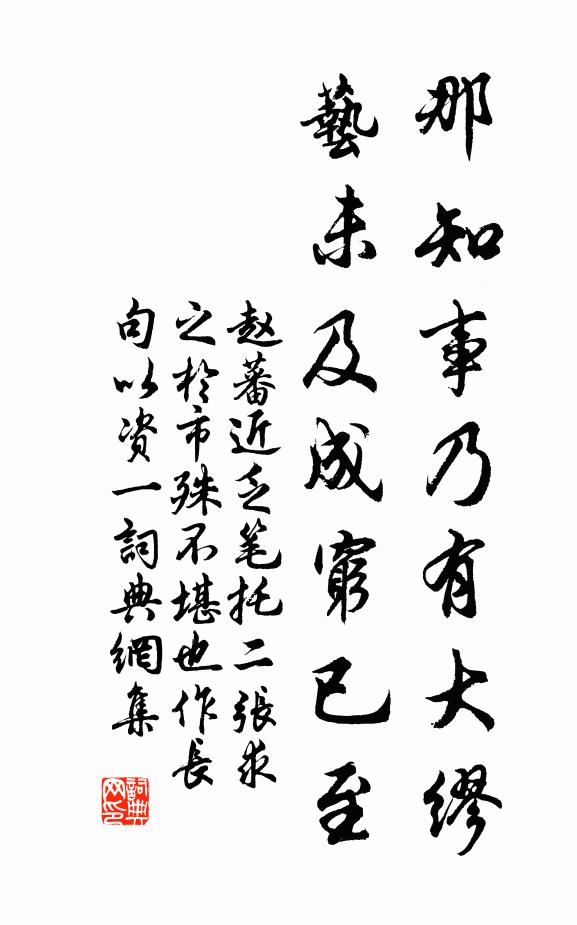 那知事乃有大繆
藝未及成窮已至
赵蕃近乏笔托二張求
之於市殊不堪也作長
句以资一詞典網集
詞典网印